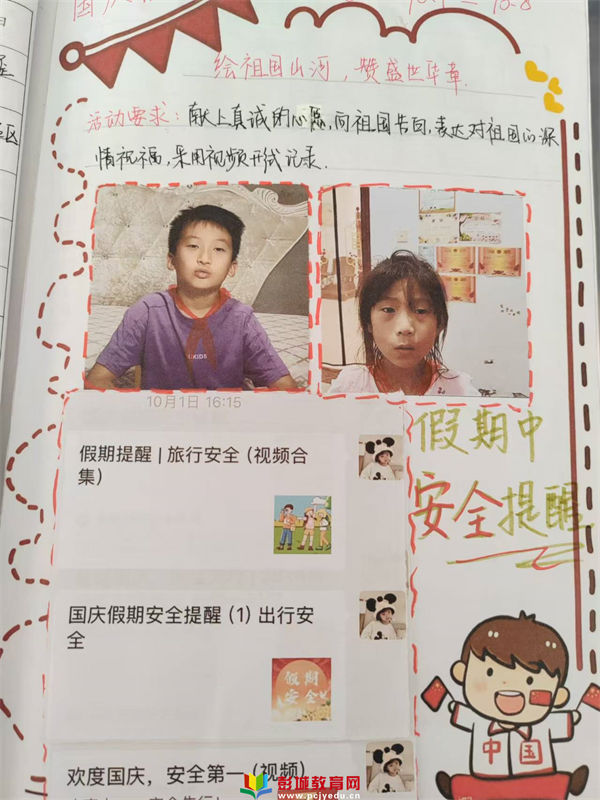 国庆
绘祖国山河，赞盛世华章
活动要求：献上真诚的心愿，向祖国告白，表达对祖国的深
情祝福，采用视频形式记录．
KIDS
10月1日 16:15
假期提醒 | 旅行安全（视频合
集）
假期中
安全提醒
国庆假期安全提醒（1）出行安
全
假期
安全
中国
欢度国庆，安全第一（视频）
彭城教育网
www.pcjyedu.cn